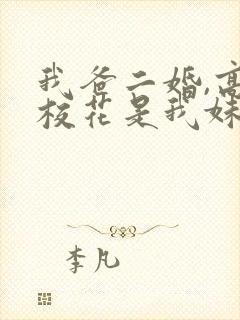 我爸二婚,高
校花是我妹
李凡